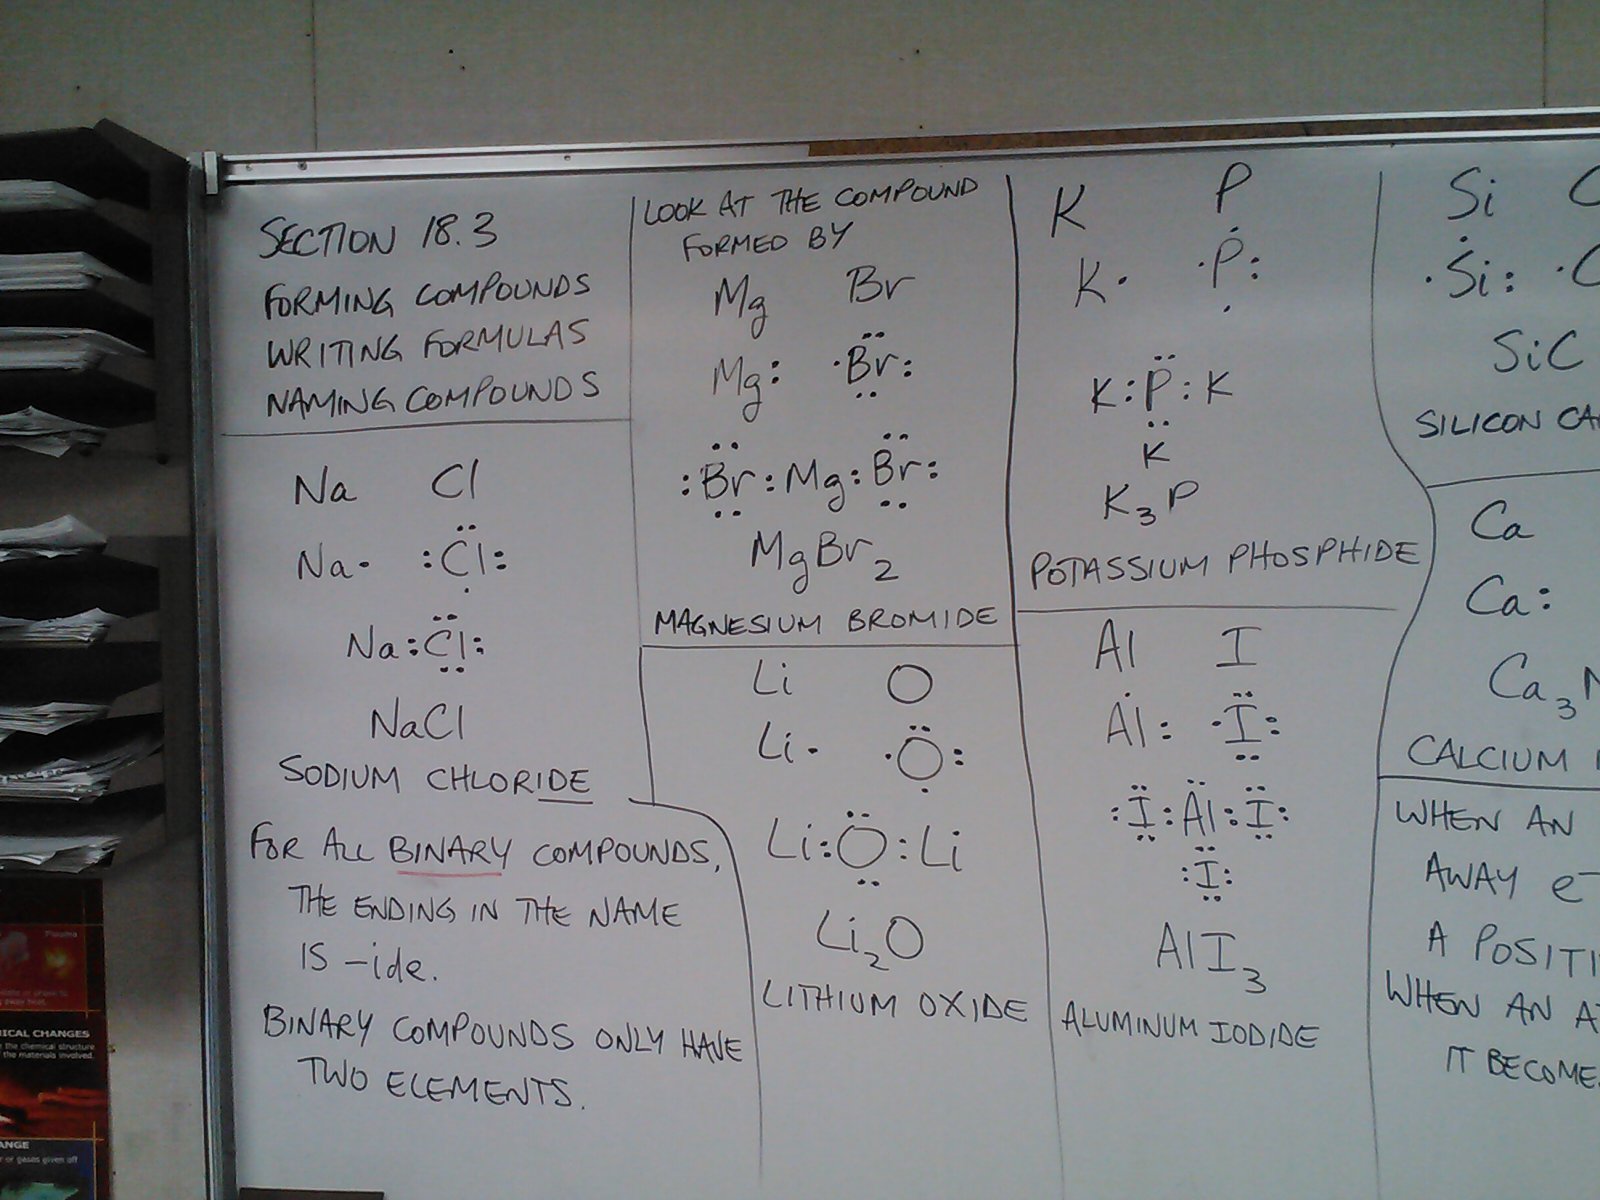 SECTION 18.3
FORMING COMPOUNDS
WRITING FORMULAS
NAMING COMPOUNDS
Na Cl
Na· :Cl:
Na:Cl:
NaCl
SODIUM CHLORIDE
FOR ALL BINARY COMPOUNDS,
THE ENDING IN THE NAME
IS -ide.
BINARY COMPOUNDS ONLY HAVE
TWO ELEMENTS.
LOOK AT THE COMPOUND
FORMED BY
Mg Br
Mg: ·Br:
:Br:Mg:Br:
MgBr₂
MAGNESIUM BROMIDE
Li O
Li· ·O:
Li:O:Li
Li₂O
LITHIUM OXIDE
K P
K· ·P:
K:P:K
K
K₃P
POTASSIUM PHOSPHIDE
Al I
Al: ·I:
:I:Al:I:
:I:
AlI₃
ALUMINUM IODIDE
Si C
·Si: ·C
SiC
SILICON CA
Ca
Ca:
Ca₃N
CALCIUM
WHEN AN
AWAY e⁻
A POSITI
WHEN AN A
IT BECOME
ICAL CHANGES
the chemical structure
the materials involved.
ANGE
or gases given off